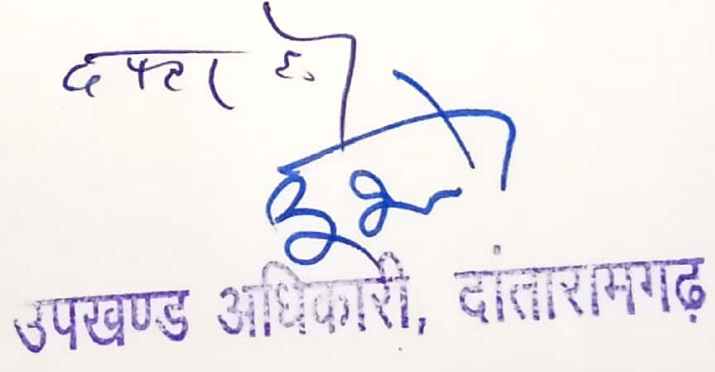 दफ्तर हो
उपखण्ड अधिकारी, दांतारामगढ़